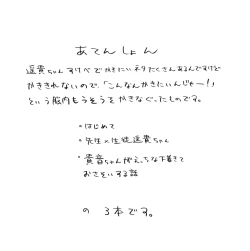 あてんしょん
遥貴ちゃんすけべでかきたいネタたくさんあるんですけど
かききれないので、「こんなんかきたいんじゃー！」
という脳内もうそうをかきなぐったものです。
・はじめて
・先生×生徒遥貴ちゃん
・貴音ちゃんがえっちな下着きて
おさそいする話
の3本です。